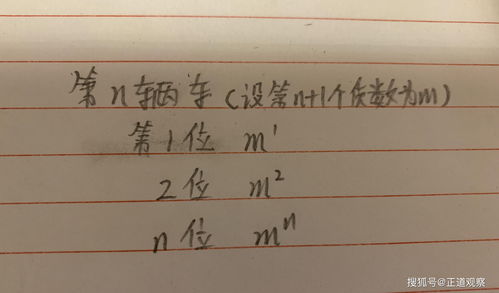 第n辆车(设第n+1个质数为m)
第1位 m¹
2位 m²
n位 mⁿ
搜狐号@正道观察